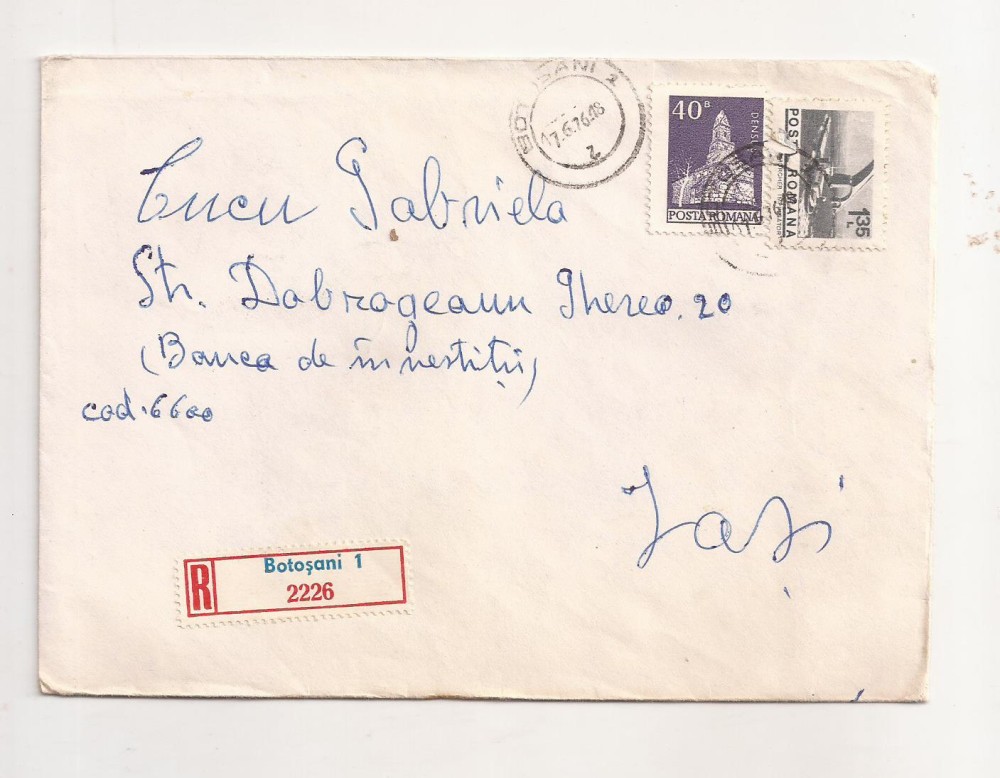 BOTOȘANI 2
17.6.76.18
2
40B
DENS
POSTA ROMANA
POSTA ROMANA
1,35 L
Cucu Gabriela
Str. Dobrogeanu Gherea. 20
(Banca de investitii)
cod. 6600
Iași
R
Botoșani 1
2226